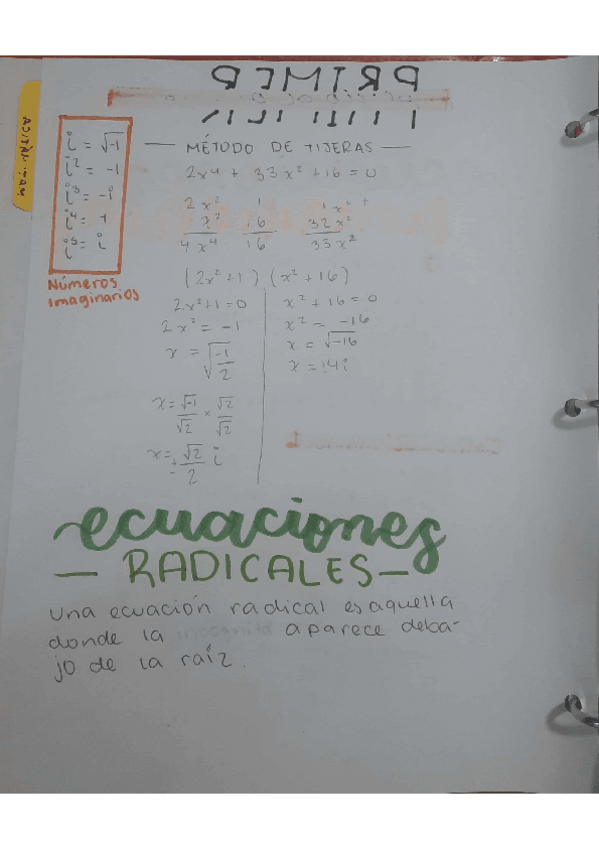 PRIMER
i = √-1
i² = -1
i³ = -i
i⁴ = 1
i⁵ = i
Números
imaginarios
— MÉTODO DE TIJERAS —
2x⁴ + 33x² + 16 = 0
2x² 1 1x² +
x² 16 32x²
4x⁴ 16 33x²
(2x²+1) (x²+16)
2x²+1=0
2x² = -1
x = √-1/2
x = √-1/√2 × √2/√2
x = ± √2/2 i
x² + 16 = 0
x² = -16
x = √-16
x = ±4i
ecuaciones
— RADICALES —
Una ecuación radical es aquella
donde la incognita aparece deba-
jo de la raíz.